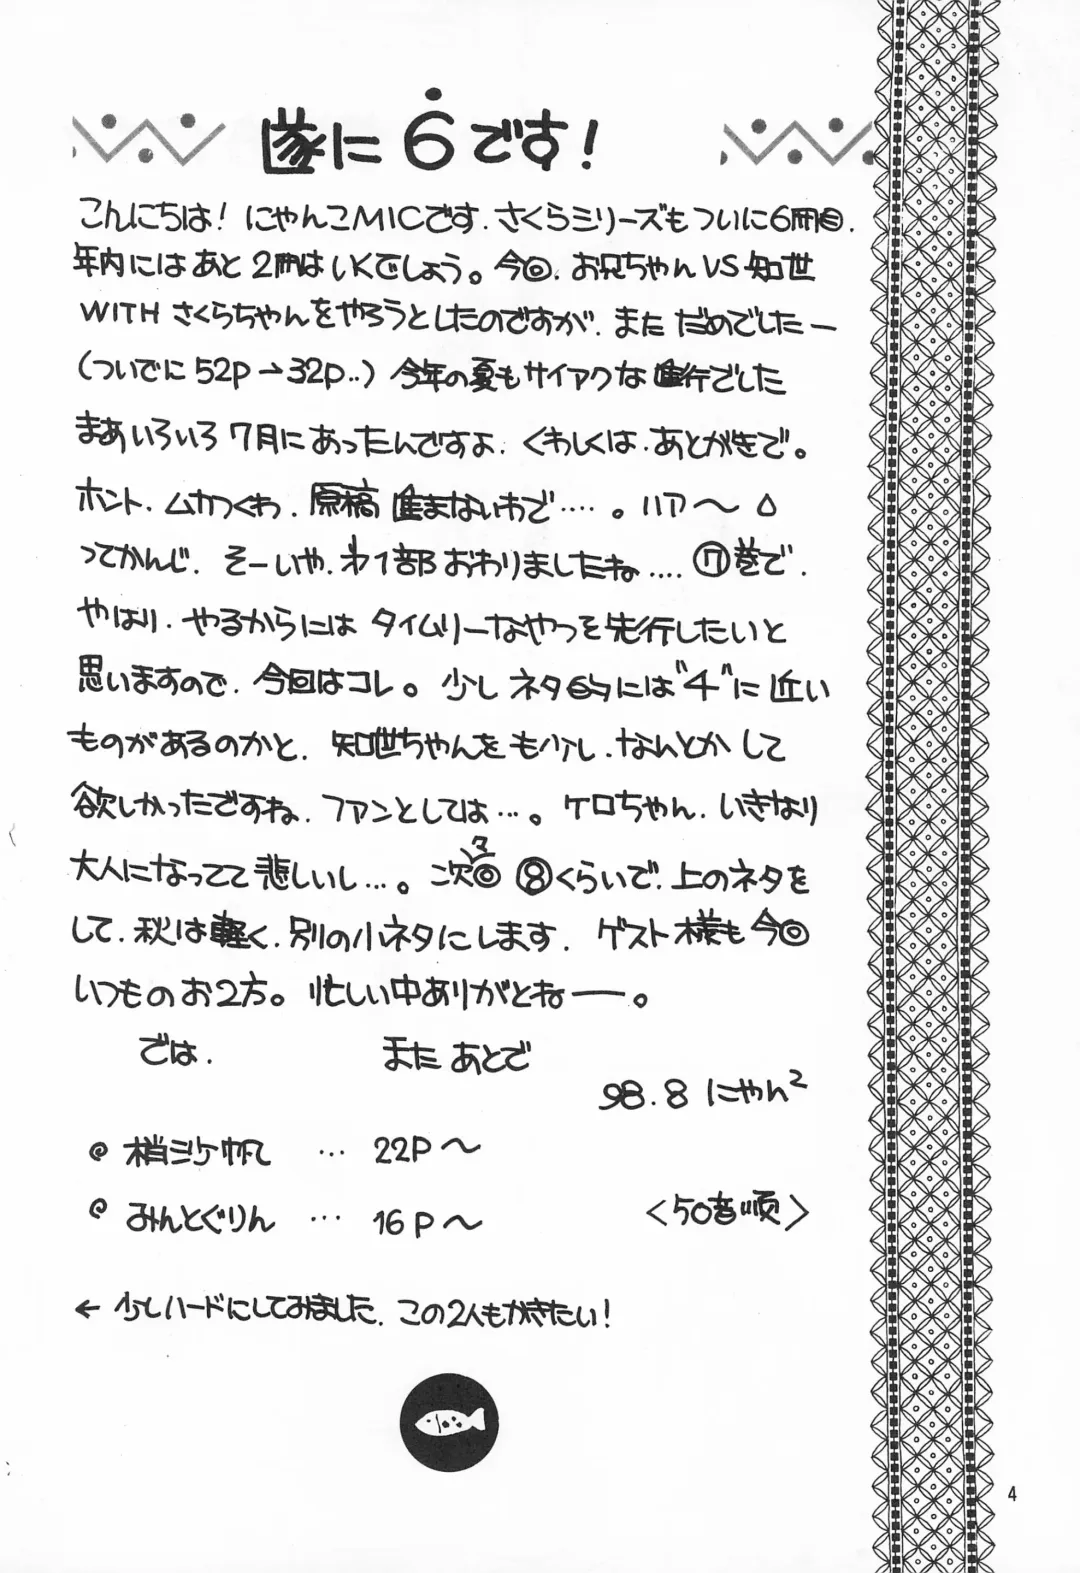 遂に6です!
こんにちは! にゃんこMICです. さくらシリーズもついに6冊目.
年内にはあと2冊はいくでしょう。今回. お兄ちゃんVS知世
WITHさくらちゃんをやろうとしたのですが. まただめでしたー
(ついでに52P→32P..) 今年の夏もサイアクな進行でした
まあいろいろ7月にあったんですよ. くわしくは.あとがきで。
ホント. ムカつくわ. 原稿進まないわで…. 。ハア〜
ってかんじ. そーいや. 才1部おわりましたね.... ⑦巻で.
やはり. やるからにはタイムリーなやつを先行したいと
思いますので. 今回はコレ。少しネタ的には"4"に近い
ものがあるのかと. 知世ちゃんをも少し.なんとかして
欲しかったですね. ファンとしては…。ケロちゃん. いきなり
大人になってて悲しいし…。次々回⑧くらいで.上のネタを
して.秋は軽く.別の小ネタにします. ゲスト様も今回
いつものお2方。忙しい中ありがとねー。
では. またあとで
98.8 にゃん²
梢ミケ帆 … 22P〜
みんとぐりん … 16P〜
<50音順>
← 少しハードにしてみました. この2人もかきたい!
4